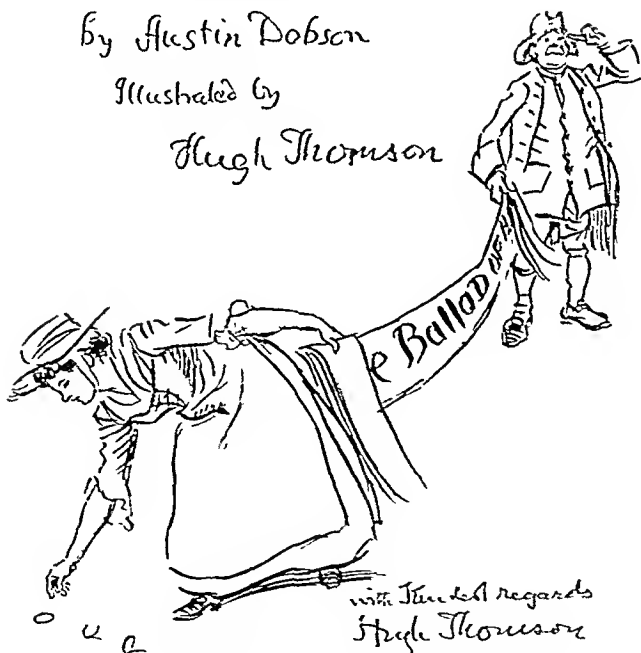 by Austin Dobson
Illustrated by
Hugh Thomson
e Ballad of B
with Kindest regards
Hugh Thomson